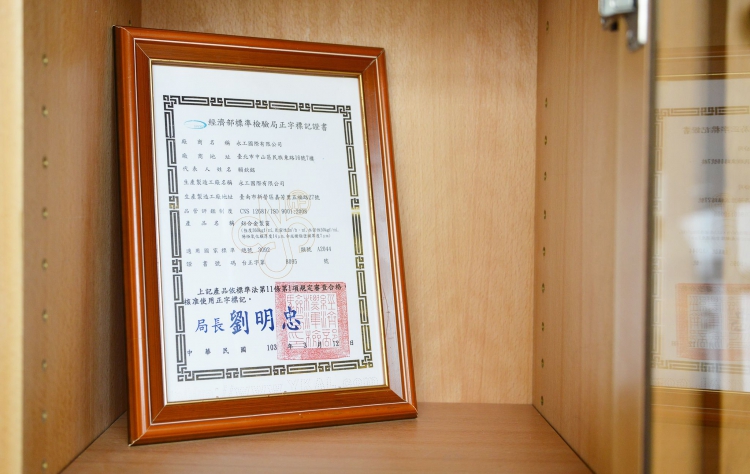 經濟部標準檢驗局正字標記證書
廠商名稱 永工國際有限公司
廠商地址 臺北市中山區民族東路16號7樓
代表人姓名
生產製造工廠名稱 永工國際有限公司
生產製造工廠地址
品管評鑑制度 CNS 12681/ISO 9001:2008
產品名稱 鋁合金製窗
適用國家標準 總號 3092 類號 A2044
證書號碼 台正字第 號
上記產品依標準法第11條第1項規定審查合格,
核准使用正字標記。
局長 劉明忠
中華民國 103 年 3 月 12 日